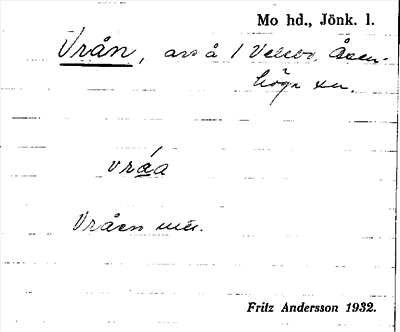 Mo hd., Jönk. l.
Vrån, avs å 1 Åsen-
höga sn.
vráa
Vråen
Fritz Andersson 1932.